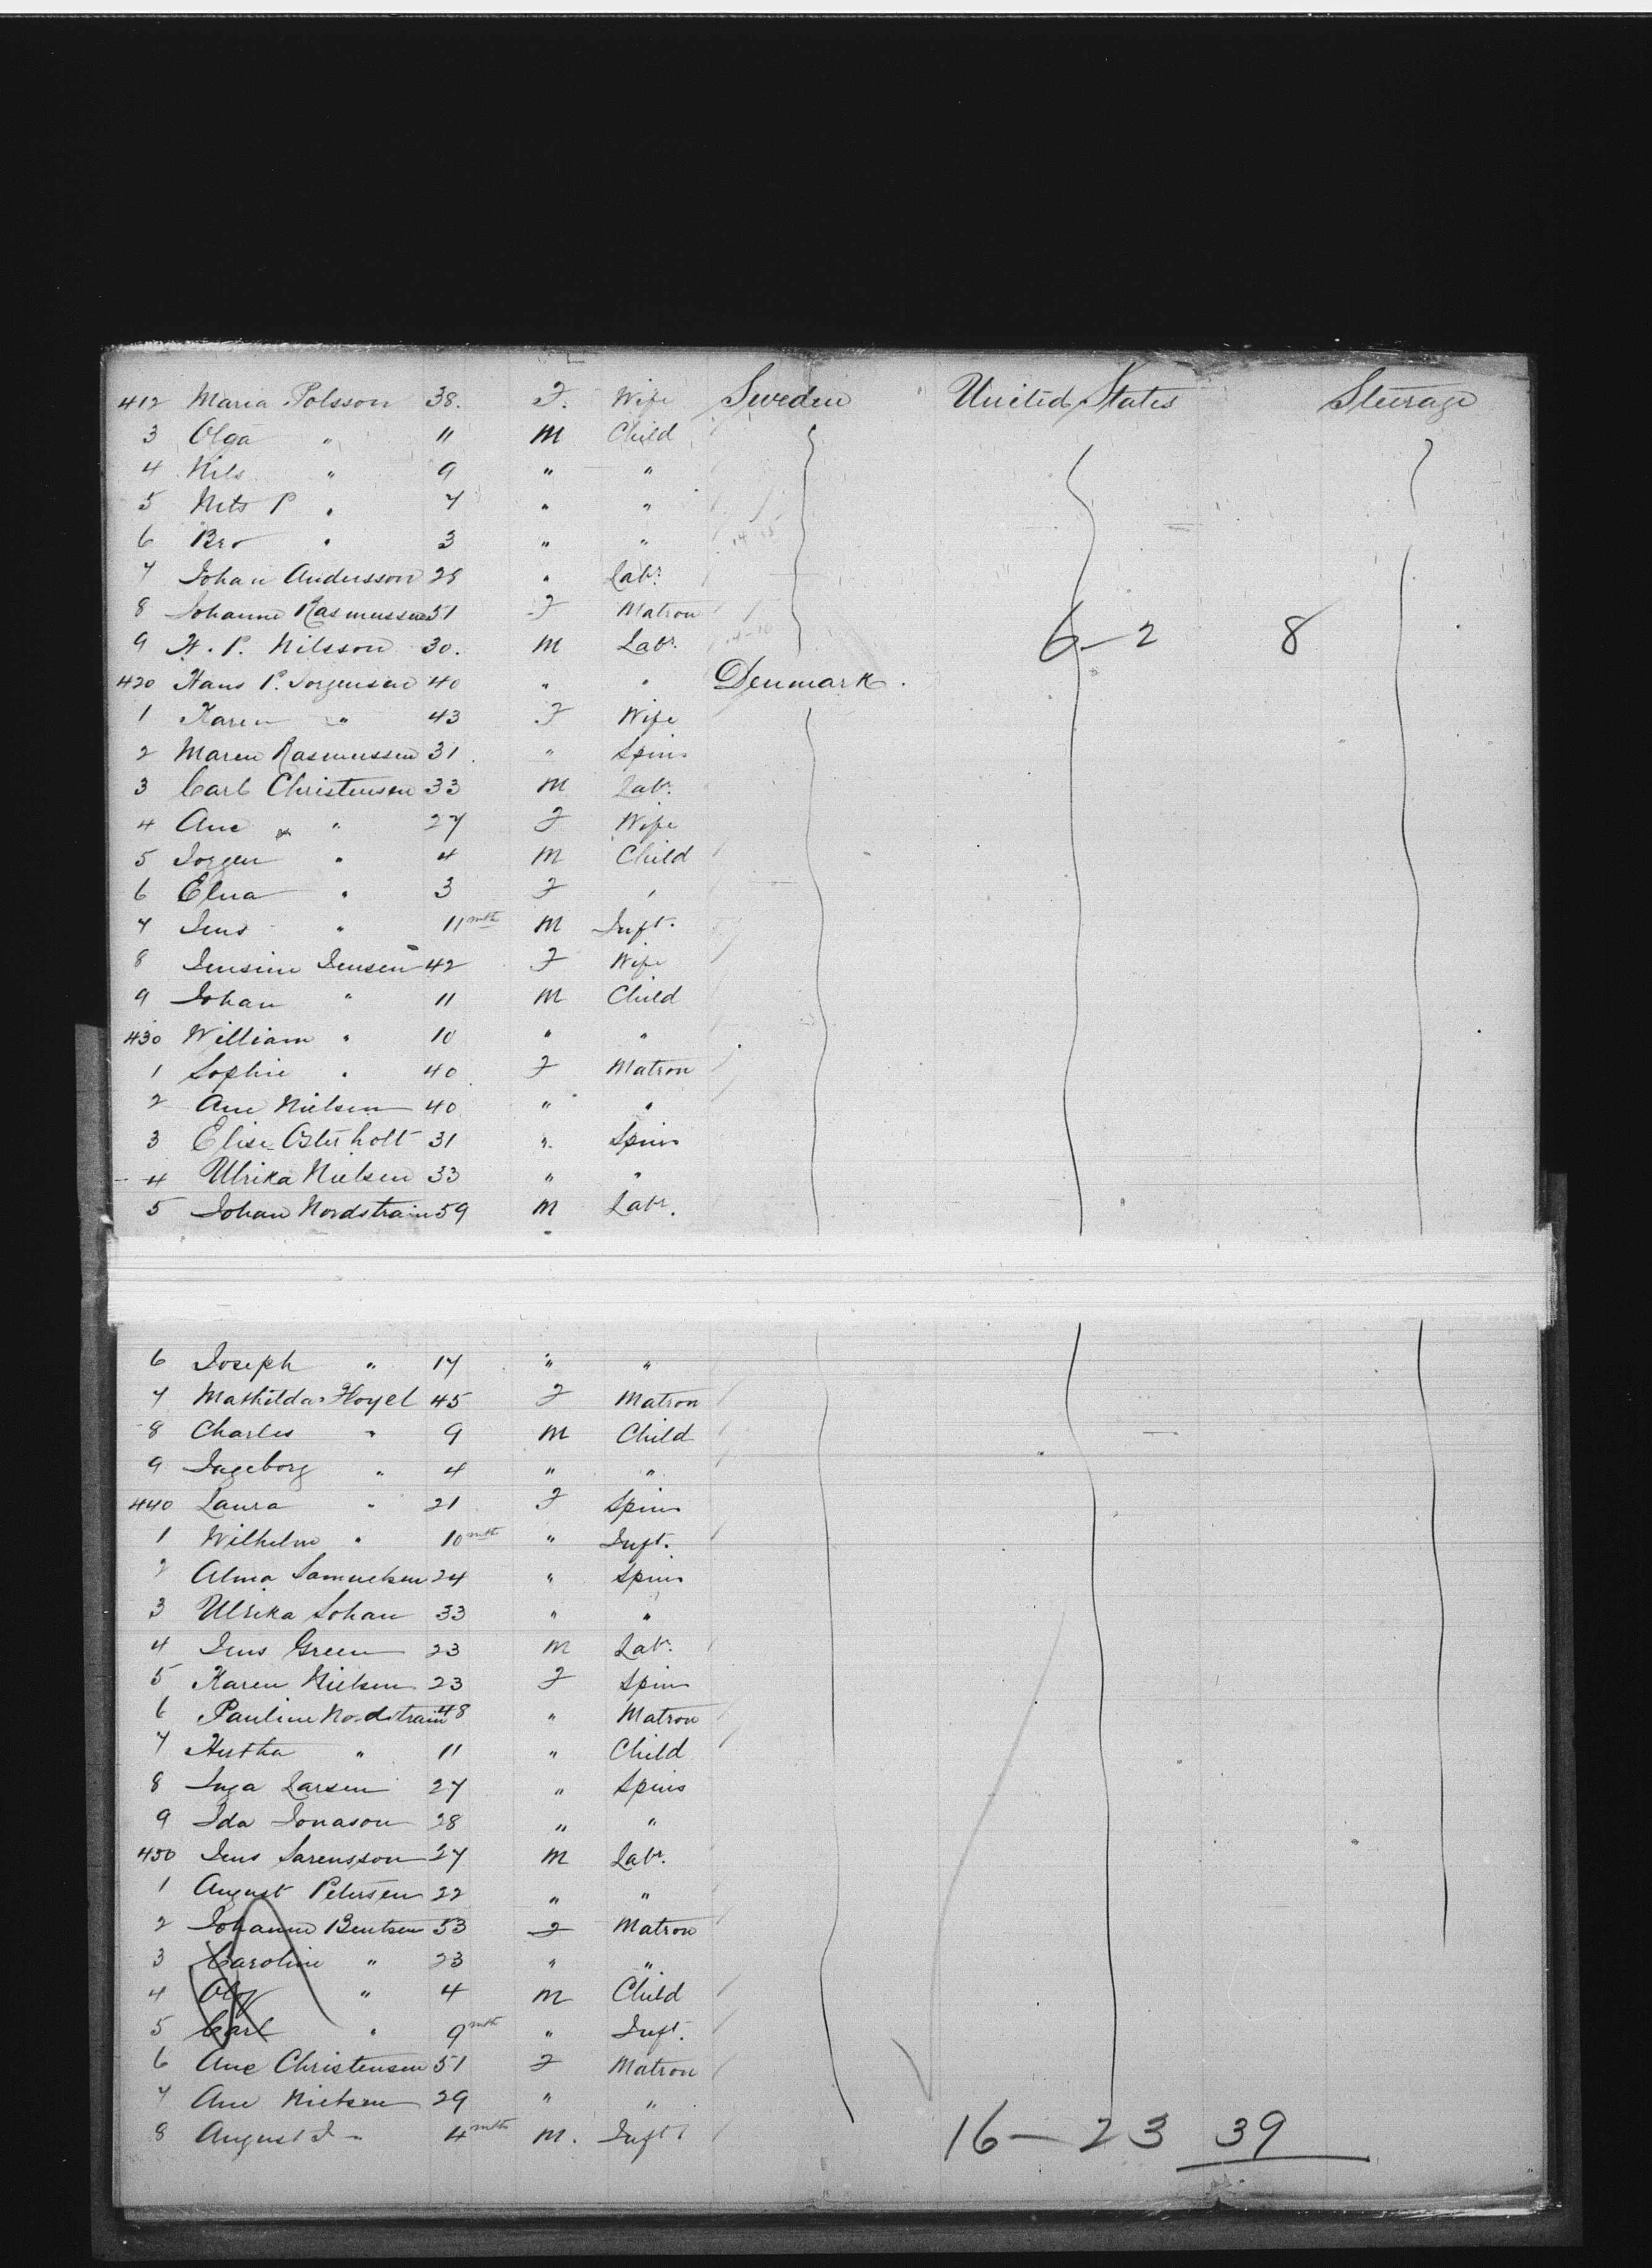 412 Maria Polsson 38. F. Wife Sweden United States Steerage
3 Olga " 11 M Child
4 Nils " 9 " "
5 Mts P " 7 " "
6 Bro " 3 " "
7 Johan Andersson 28 " Labr.
8 Johanne Rasmussen 51 F Matron
9 H. P. Nilsson 30. M Labr. 6-2 8
420 Hans P. Jorgensen 40 " " Denmark.
1 Karen " 43 F Wife
2 Maren Rasmussen 31 " Spins
3 Carl Christensen 33 M Labr.
4 Ane " 27 F Wife
5 Jorgen " 4 M Child
6 Elna " 3 F "
7 Jens " 11 mth M Inft.
8 Jensine Jensen 42 F Wife
9 Johan " 11 M Child
430 William " 10 " "
1 Sophie " 40 F Matron
2 Ane Nielsen 40 " "
3 Elise Osterholt 31 " Spins
4 Ulrika Nielsen 33 " "
5 Johan Nordstrain 59 M Labr.
6 Joseph " 17 " "
7 Mathilda Hoyel 45 F Matron
8 Charles " 9 M Child
9 Ingeborg " 4 " "
440 Laura " 21 F Spins
1 Wilhelm " 10 mth " Inft.
2 Alma Samuelsen 24 " Spins
3 Ulrika Johan 33 " "
4 Jens Green 23 M Labr.
5 Karen Nielsen 23 F Spins
6 Pauline Nordstrain 48 " Matron
7 Hertha " 11 " Child
8 Inga Larsen 27 " Spins
9 Ida Jonason 28 " "
450 Jens Sarensson 27 M Labr.
1 August Petersen 22 " "
2 Johanne Bentsen 53 F Matron
3 Caroline " 23 " "
4 Olof " 4 M Child
5 Carl " 9 mth " Inft.
6 Ane Christensen 51 F Matron
7 Ane Nielsen 29 " "
8 August J " 4 mth M. Inft
16-23 39